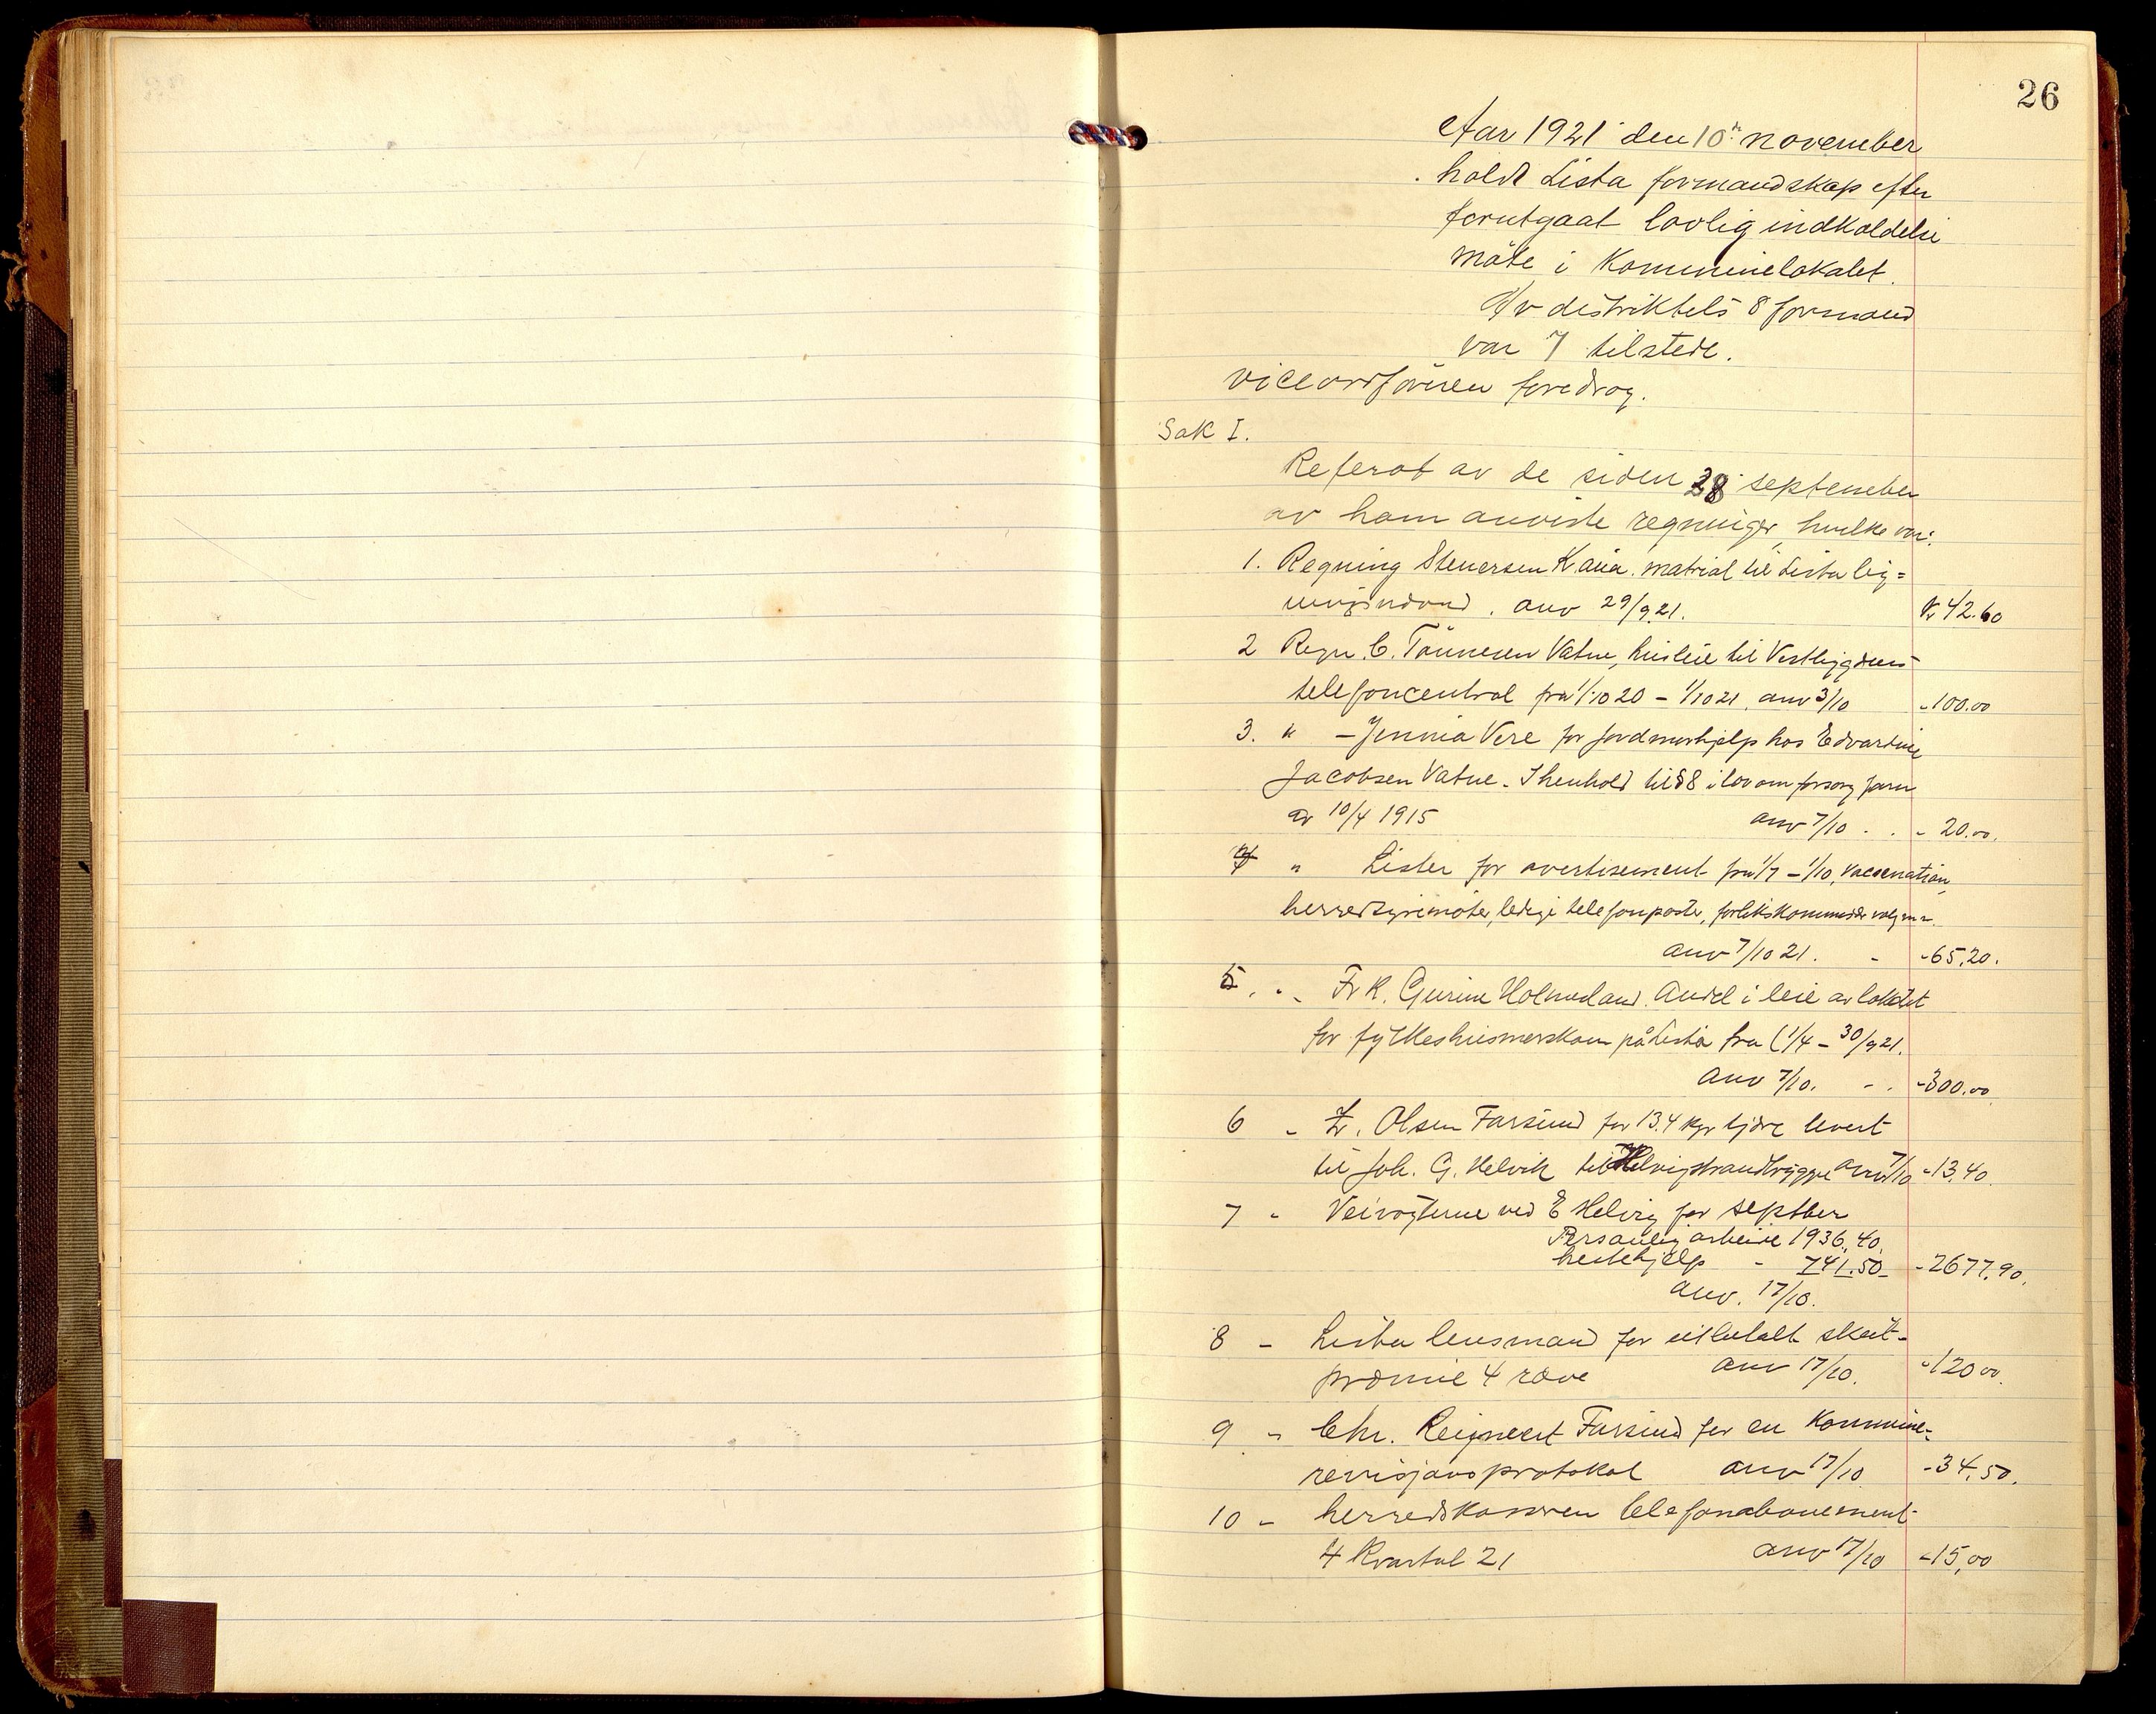 26
Aar 1921 den 10de november
holdt Lista formandskap efter
forutgaat lovlig indkaldelse
møte i Kommunelokalet.
Av distriktets 8 formænd
var 7 tilstede.
viceordføreren foredrog.
Sak I.
Referat av de siden 28 september
av ham anviste regninger, hvilke var:
1. Regning Stenersen Kania. matrial til Lista lig=
anv 29/9 21. Kr 42.60
2 Regn. C. Tønnesen Vatne, husleie til Vestbygdens
telefoncentral fra 1/10 20 – 1/10 21. anv 3/10 - 100.00
3. " – Jennia Vere for jordmorhjelp hos Edvardine
Jacobsen Vatne. I henhold til § 8 i lov om forsorg for
av 10/4 1915 anv 7/10 . . - 20.00.
4 " Lister for avertisement fra 1/7 – 1/10, vaccination,
herredsstyremøter, ledige telefonposter, forlikskommissær valg m.m.
anv 7/10 21. - - 65.20.
5. " Frk. Gurine Holmeland. Andel i leie av lokalet
for fylkeshusmorskolen på Lista fra (1/4 – 30/9 21.
anv 7/10. - . - 300.00
6 - Olsen Farsund for 13.4 kgr tjære levert
til Joh. G. Helvik til Helvigstrandbrygge anv 7/10 - 13.40.
7 - Veivogterne ved E Helvig for septber
Personlig arbeide 1936.40.
hestehjelp - 741.50 - 2677.90.
anv. 17/10.
8 - Lista lensmand for utbetalt skut-
præmie 4 ræve anv 17/10. - 120 00.
9 - Chr. Reignert Farsund for en Kommune-
revisjonsprotokol anv 17/10 - 34.50.
10 - herredskasseren telefonabonement
4 Kvartal 21 anv 17/10 - 15,00